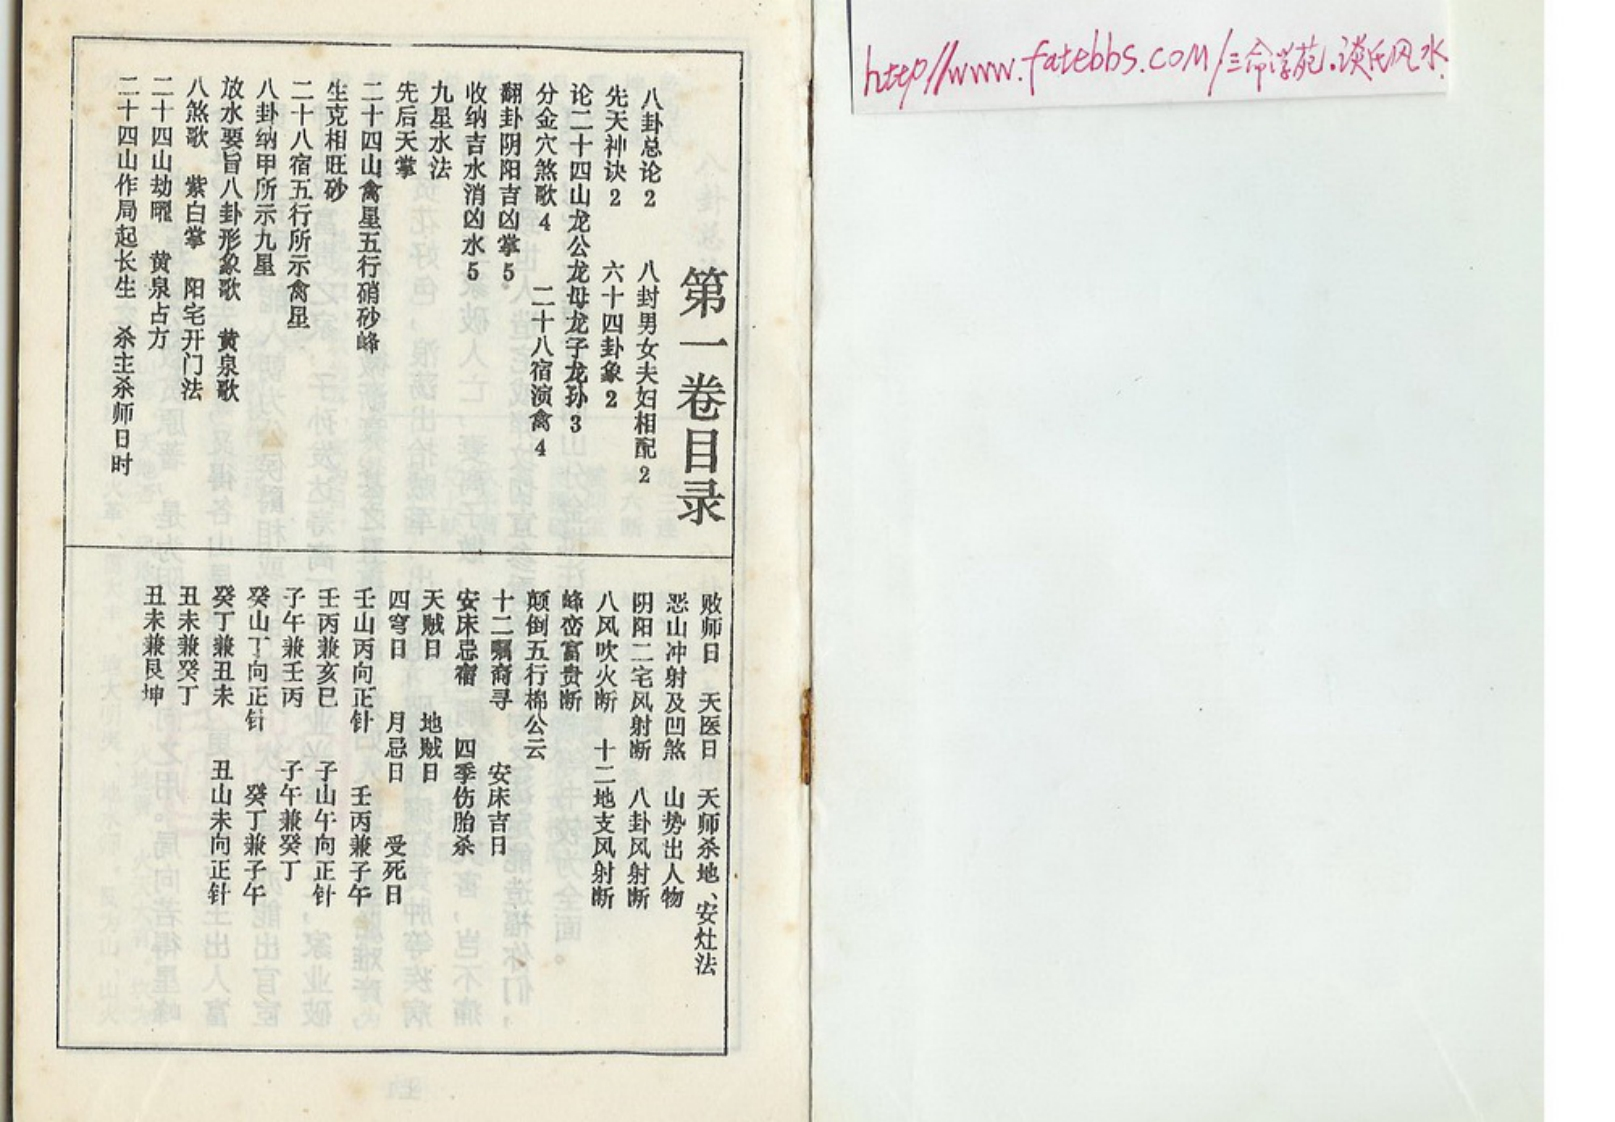 http//www.fatebbs.com/三命学苑.谈氏风水.
第一卷目录
八卦总论2 八封男女夫妇相配2
先天神诀2 六十四卦象2
论二十四山龙公龙母龙子龙孙3
分金穴煞歌4 二十八宿演禽4
翻卦阴阳吉凶掌5
收纳吉水消凶水5
九星水法
先后天掌
二十四山禽星五行硝砂峰
生克相旺砂
二十八宿五行所示禽星
八卦纳甲所示九星
放水要旨八卦形象歌 黄泉歌
八煞歌 紫白掌 阳宅开门法
二十四山劫曜 黄泉占方
二十四山作局起长生 杀主杀师日时
败师日 天医日 天师杀地、安灶法
恶山冲射及凹煞 山势出人物
阴阳二宅风射断 八卦风射断
八风吹火断 十二地支风射断
峰峦富贵断
颠倒五行棉公云
十二嘱裔寻 安床吉日
安床忌宿 四季伤胎杀
天贼日 地贼日
四穹日 月忌日 受死日
壬山丙向正针 壬丙兼子午
壬丙兼亥巳 子山午向正针
子午兼壬丙 子午兼癸丁
癸山丁向正针 癸丁兼子午
癸丁兼丑未 丑山未向正针
丑未兼癸丁
丑未兼艮坤